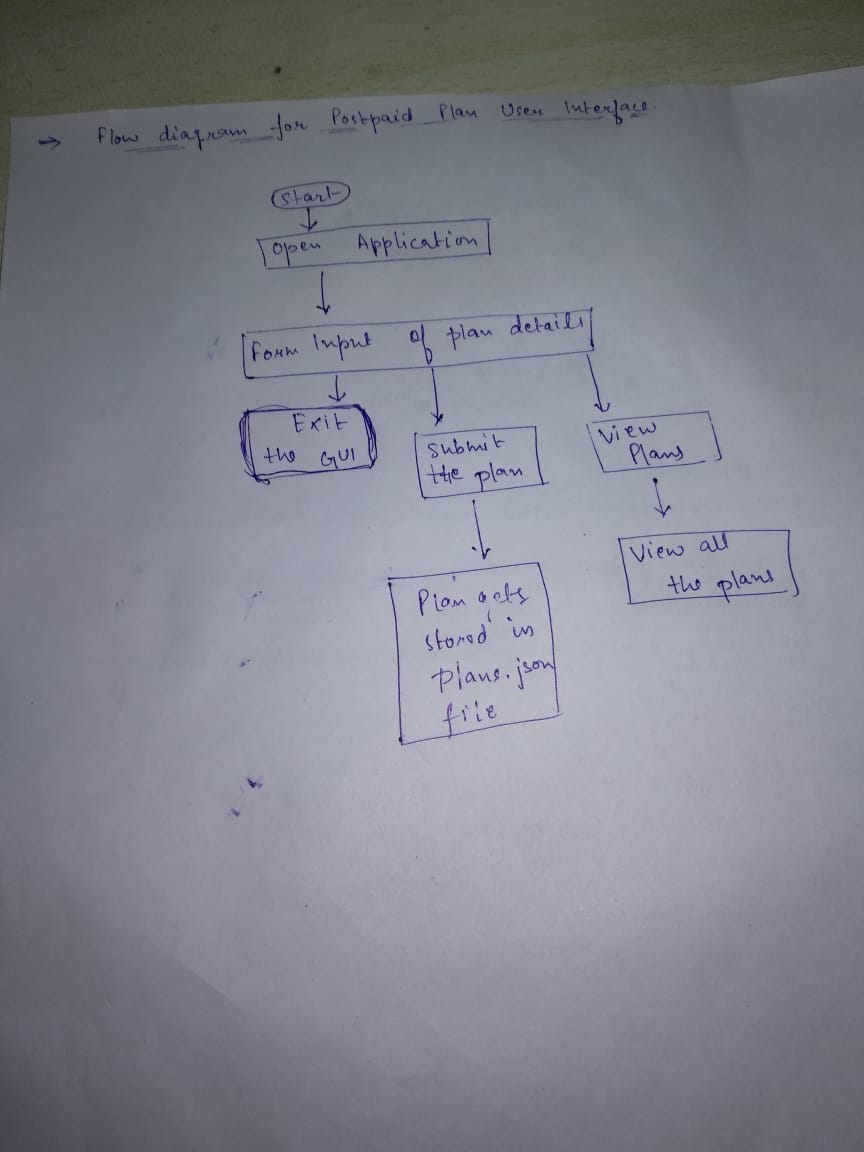 → Flow diagram for Postpaid Plan User Interface.
Start
Open Application
Form Input of plan details
Exit
the GUI
Submit
the plan
View
Plans
Plan gets
stored in
Plans.json
file
View all
the plans